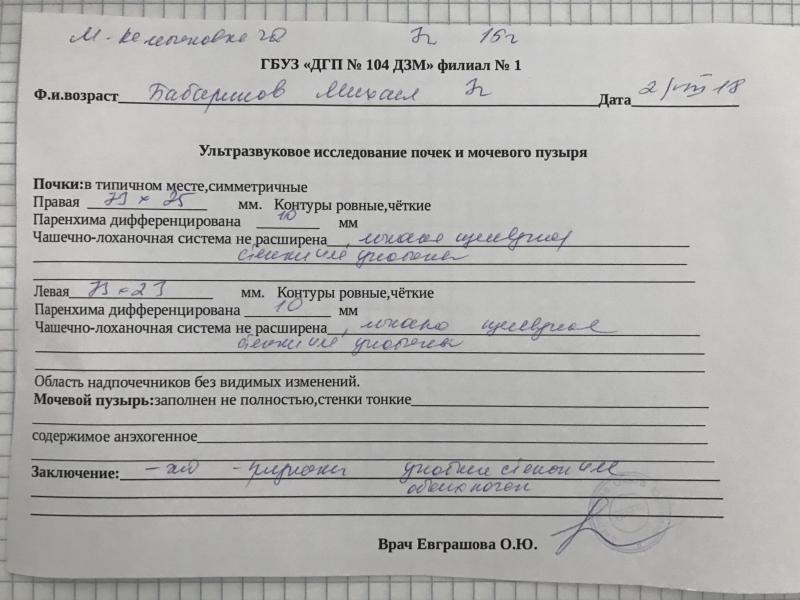 ГБУЗ «ДГП № 104 ДЗМ» филиал № 1
Ф.и.возраст Бабаринов Михаил 3г Дата 2/VIII 18
Ультразвуковое исследование почек и мочевого пузыря
Почки:в типичном месте,симметричные
Правая 73 × 25 мм. Контуры ровные,чёткие
Паренхима дифференцирована 10 мм
Чашечно-лоханочная система не расширена, лоханка щелевидная
стенки чле уплотнены
Левая 73 × 23 мм. Контуры ровные,чёткие
Паренхима дифференцирована 10 мм
Чашечно-лоханочная система не расширена, лоханка щелевидная
стенки чле уплотнены
Область надпочечников без видимых изменений.
Мочевой пузырь:заполнен не полностью,стенки тонкие
содержимое анэхогенное
Заключение: - эхо - признаки уплотнения стенок чле
обеих почек
Врач Евграшова О.Ю.